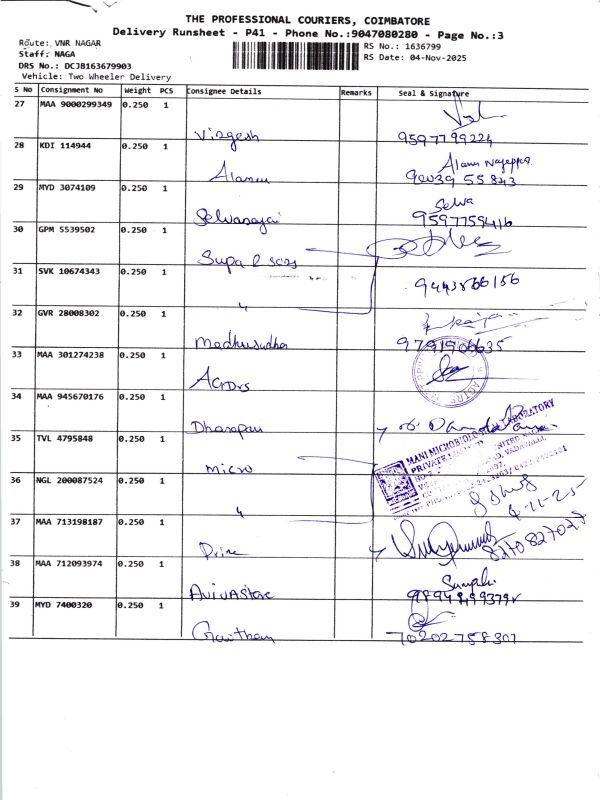 THE PROFESSIONAL COURIERS, COIMBATORE
Delivery Runsheet - P41 - Phone No.:9047080280 - Page No.:3
Route: VNR NAGAR
Staff: NAGA
DRS No.: DCJB163679903
Vehicle: Two Wheeler Delivery
RS No.: 1636799
RS Date: 04-Nov-2025
S No Consignment No Weight PCS Consignee Details Remarks Seal & Signature
27 MAA 9000299349 0.250 1
Virgesh 9597799224
28 KDI 114944 0.250 1
Alamu Alamu Nageppa
90039 55843
29 MYD 3074109 0.250 1
Selvarajai Selva
9597759416
30 GPM 5539502 0.250 1
31 SVK 10674343 0.250 1
"
9443866156
32 GVR 28008302 0.250 1
Madhusudha 9791906635
33 MAA 301274238 0.250 1
34 MAA 945670176 0.250 1
35 TVL 4795848 0.250 1
Micro
MANI MICROBIOLOGICAL LABORATORY
PRIVATE LIMITED
36 NGL 200087524 0.250 1
"
4-11-25
37 MAA 713198187 0.250 1
8270827028
38 MAA 712093974 0.250 1
39 MYD 7400320 0.250 1
Gowtham 70202758307